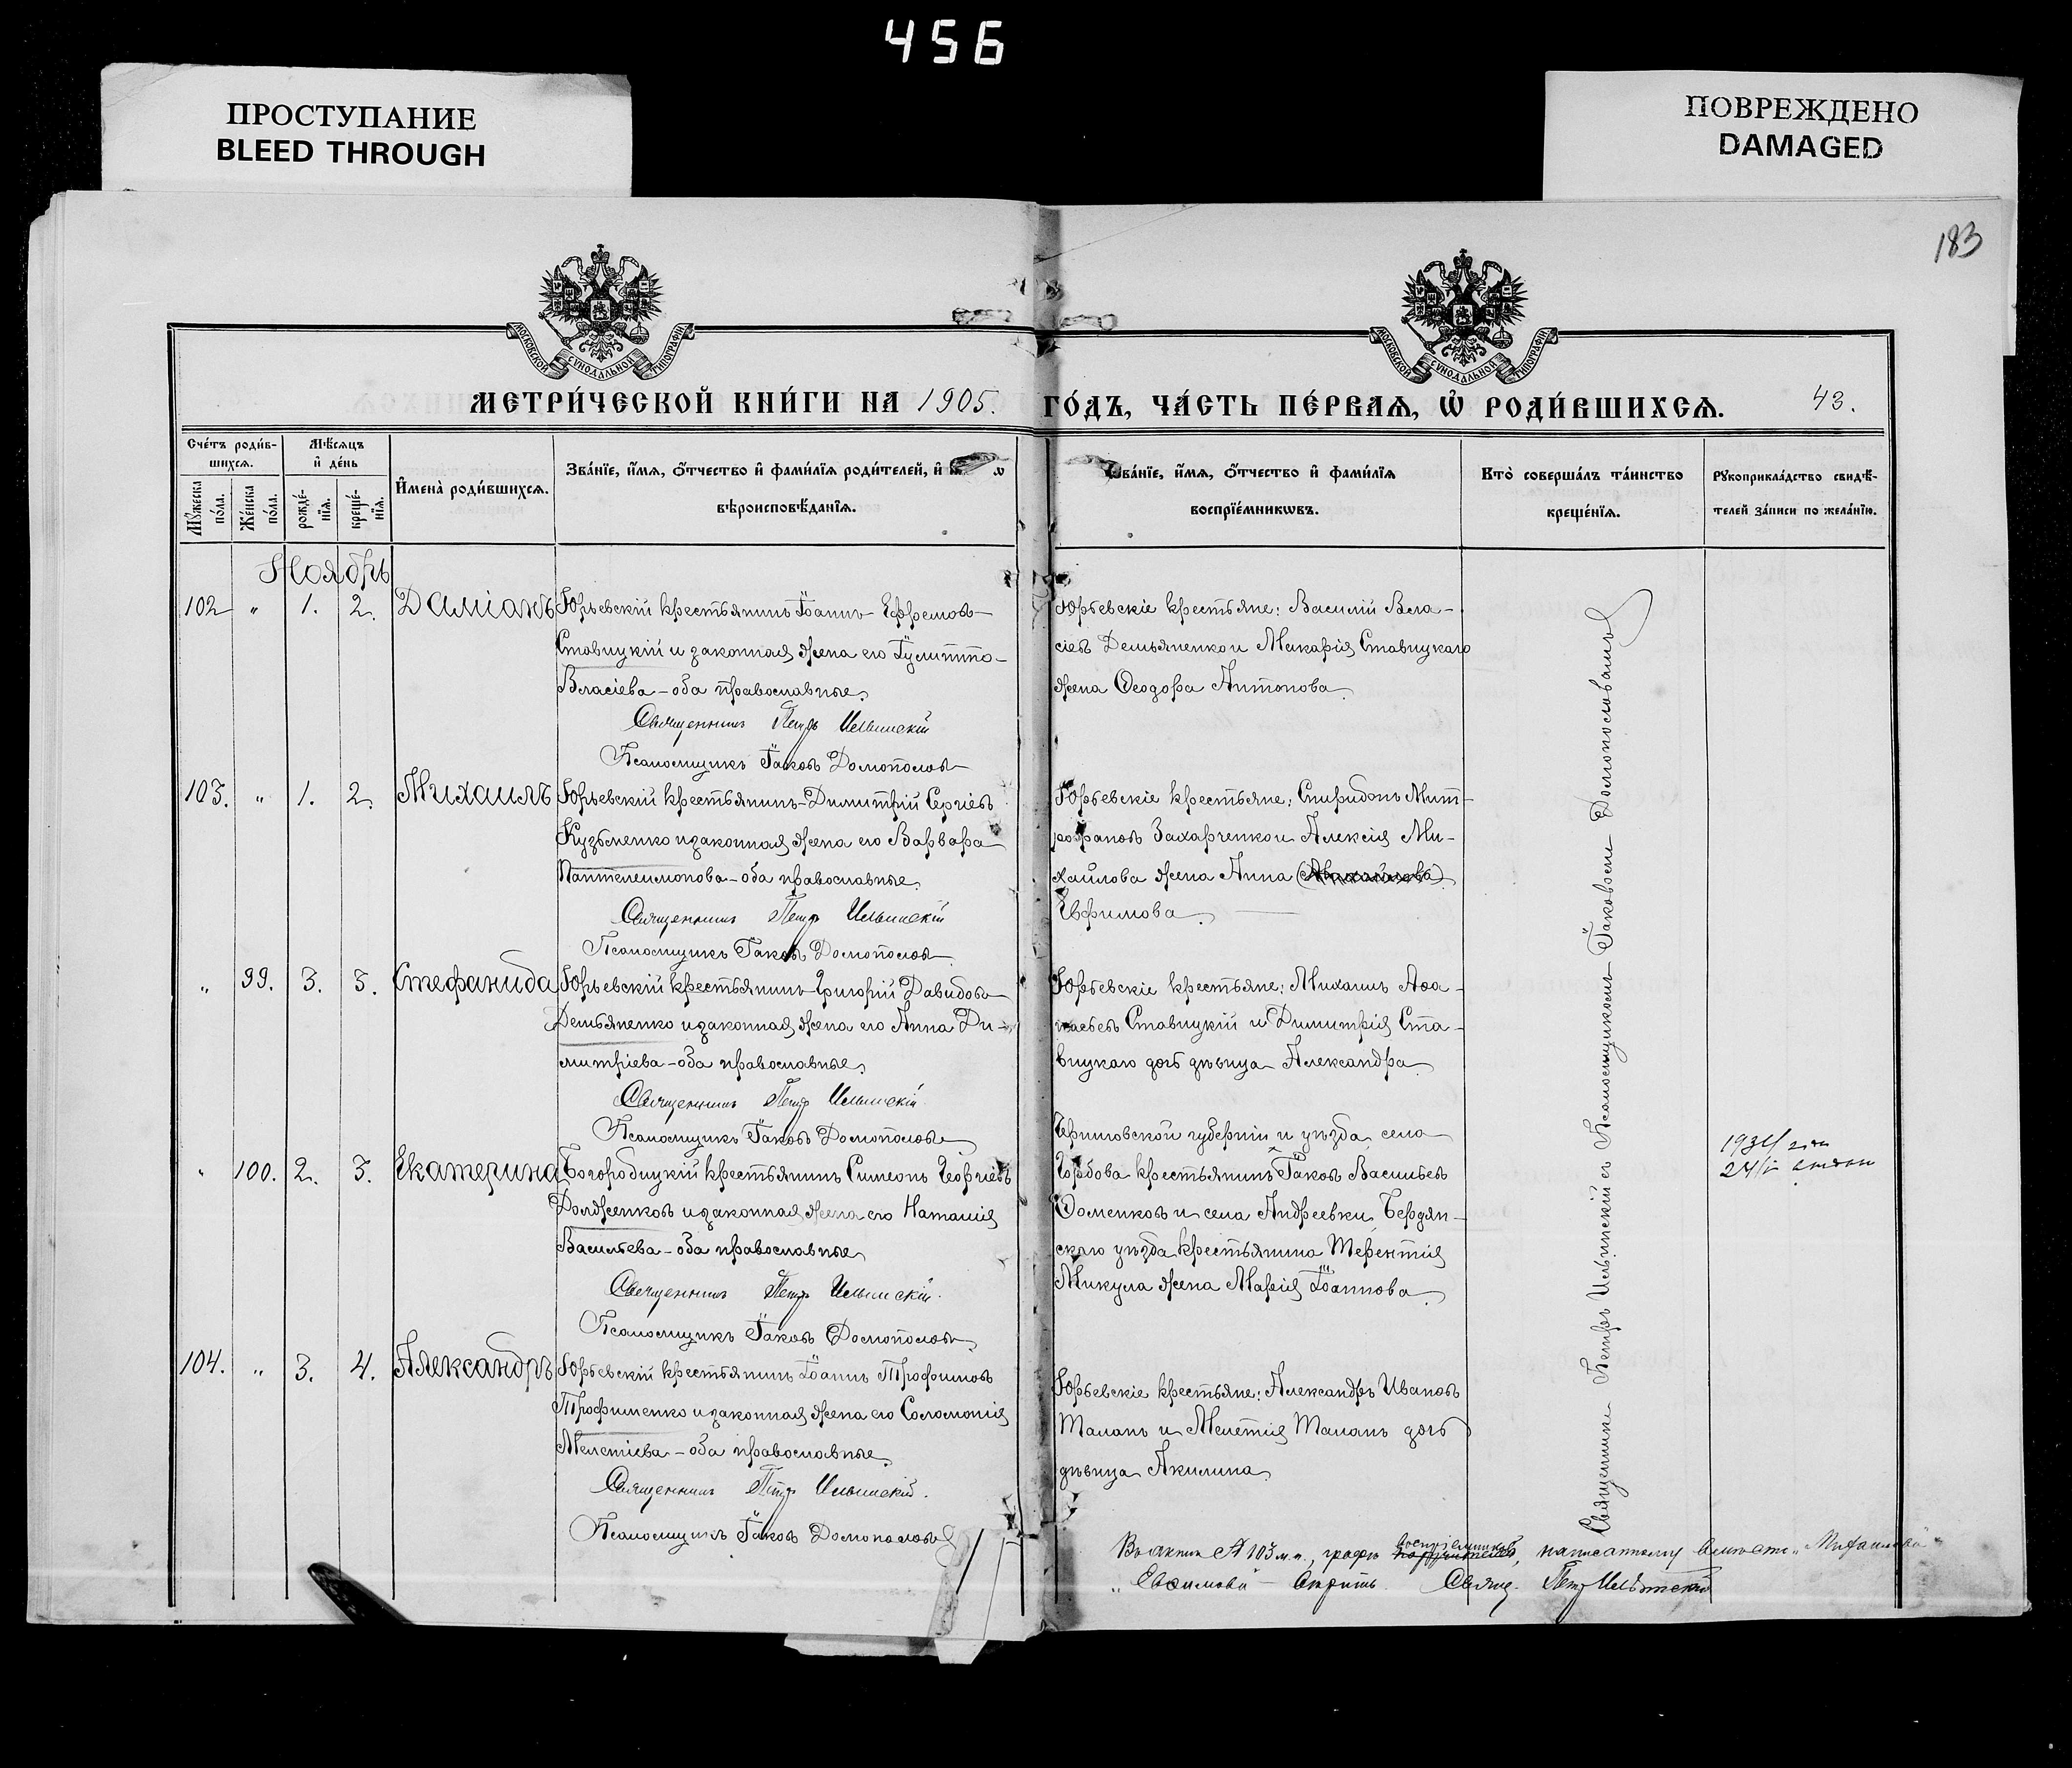 456
ПРОСТУПАНИЕ
BLEED THROUGH
ПОВРЕЖДЕНО
DAMAGED
183
МОСКОВСКОЙ СѴНОДАЛЬНОЙ ТИПОГРАФІИ
МОСКОВСКОЙ СѴНОДАЛЬНОЙ ТИПОГРАФІИ
МЕТРИ́ЧЕСКОЙ КНИ́ГИ НА 1905. ГО́ДЪ, ЧА́СТЬ ПЕ́РВАЯ, Ѡ РОДИ́ВШИХСЯ. 43.
Сче́тъ роди́в-
шихся.
Мꙋ́жеска по́ла.
Же́нска по́ла.
Мѣ́сяцъ
и҆ де́нь
рожде́-
нїя.
креще́-
нїя.
И҆мена̀ роди́вшихся.
Зва́нїе, и҆́мя, ѻ҆́тчество и҆ фамѝлїя роди́телей, и҆
вѣроисповѣ́данїя.
Зва́нїе, и҆́мя, ѻ҆́тчество и҆ фамѝлїя
воспрїе́мникѡвъ.
Кто̀ соверша́лъ та́инство
креще́нїя.
Рꙋкоприкла́дство свидѣ́-
телей за́писи по жела́нїю.
Ноябрь
102 " 1. 2. Даміанъ
Юрьевскій крестьянинъ Іоаннъ Ефремовъ
Ставицкій и законная жена его Іулитта
Власіева – оба православные.
Священникъ Петръ Ильинскій
Псаломщикъ Іаковъ Домополовъ
Юрьевскіе крестьяне: Василій Вла-
сіевъ Демьяненко и Макарія Ставицкаго
жена Ѳеодора Антонова.
103. " 1. 2. Михаилъ
Юрьевскій крестьянинъ Димитрій Сергіевъ
Кузьменко и законная жена его Варвара
Пантелеимонова – оба православные.
Священникъ Петръ Ильинскій
Псаломщикъ Іаковъ Домополовъ
Юрьевскіе крестьяне: Спиридонъ Мит-
рофановъ Захарченко и Алексія Ми-
хайлова жена Анна (Михайлова)
Евфимова.
" 99. 3. 3. Стефанида
Юрьевскій крестьянинъ Григорій Давидовъ
Демьяненко и законная жена его Анна Ди-
митріева – оба православные.
Священникъ Петръ Ильинскій
Псаломщикъ Іаковъ Домополовъ
Юрьевскіе крестьяне: Михаилъ Аѳа-
насьевъ Ставицкій и Димитрія Ста-
вицкаго дочь дѣвица Александра.
" 100. 2. 3. Екатерина
Богородицкій крестьянинъ Симеонъ Георгіевъ
Долженковъ и законная жена его Наталія
Васильева – оба православные.
Священникъ Петръ Ильинскій.
Псаломщикъ Іаковъ Домополовъ
Черниговской губерніи и уѣзда села
Горбова крестьянинъ Іаковъ Васильевъ
Ѳоменковъ и села Андреевки, Бердян-
скаго уѣзда крестьянина Терентія
Микула жена Марія Іоаннова.
1934
24/
104. " 3. 4. Александръ
Юрьевскій крестьянинъ Іоаннъ Трофимовъ
Трофименко и законная жена его Соломонія
Мелетіева – оба православные.
Священникъ Петръ Ильинскій.
Псаломщикъ Іаковъ Домополовъ
Юрьевскіе крестьяне: Александръ Ивановъ
Таланъ и Мелетія Таланъ дочь
дѣвица Акилина.
Священникъ Петръ Ильинскій съ Псаломщикомъ Іаковомъ Домополовымъ
Въ актѣ № 103 м.п., графѣ воспріемниковъ, написанному вмѣсто „Михайлова"
„Евѳимова" – вѣрить. Свящ. Петръ Ильинскій